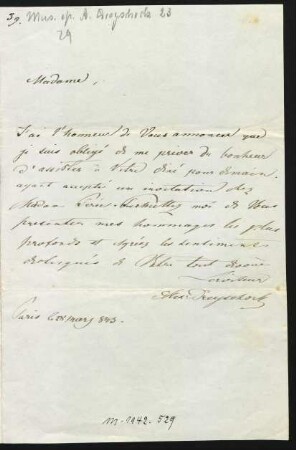 39. Mus. ep. A. Dreyschock 23
29
Madame,
J'ai l'honneur de Vous annoncer que
je suis obligé de me priver du bonheur
d'assister à Votre diné pour demain,
ayant accepté un invitation chez
Madame Permettez moi de Vous
presenter mes hommages les plus
profonds et agréez les sentiments
distingués de Votre tout dévoué
Serviteur
Alex Dreyschock
Paris mars 843.
M. 1942.529